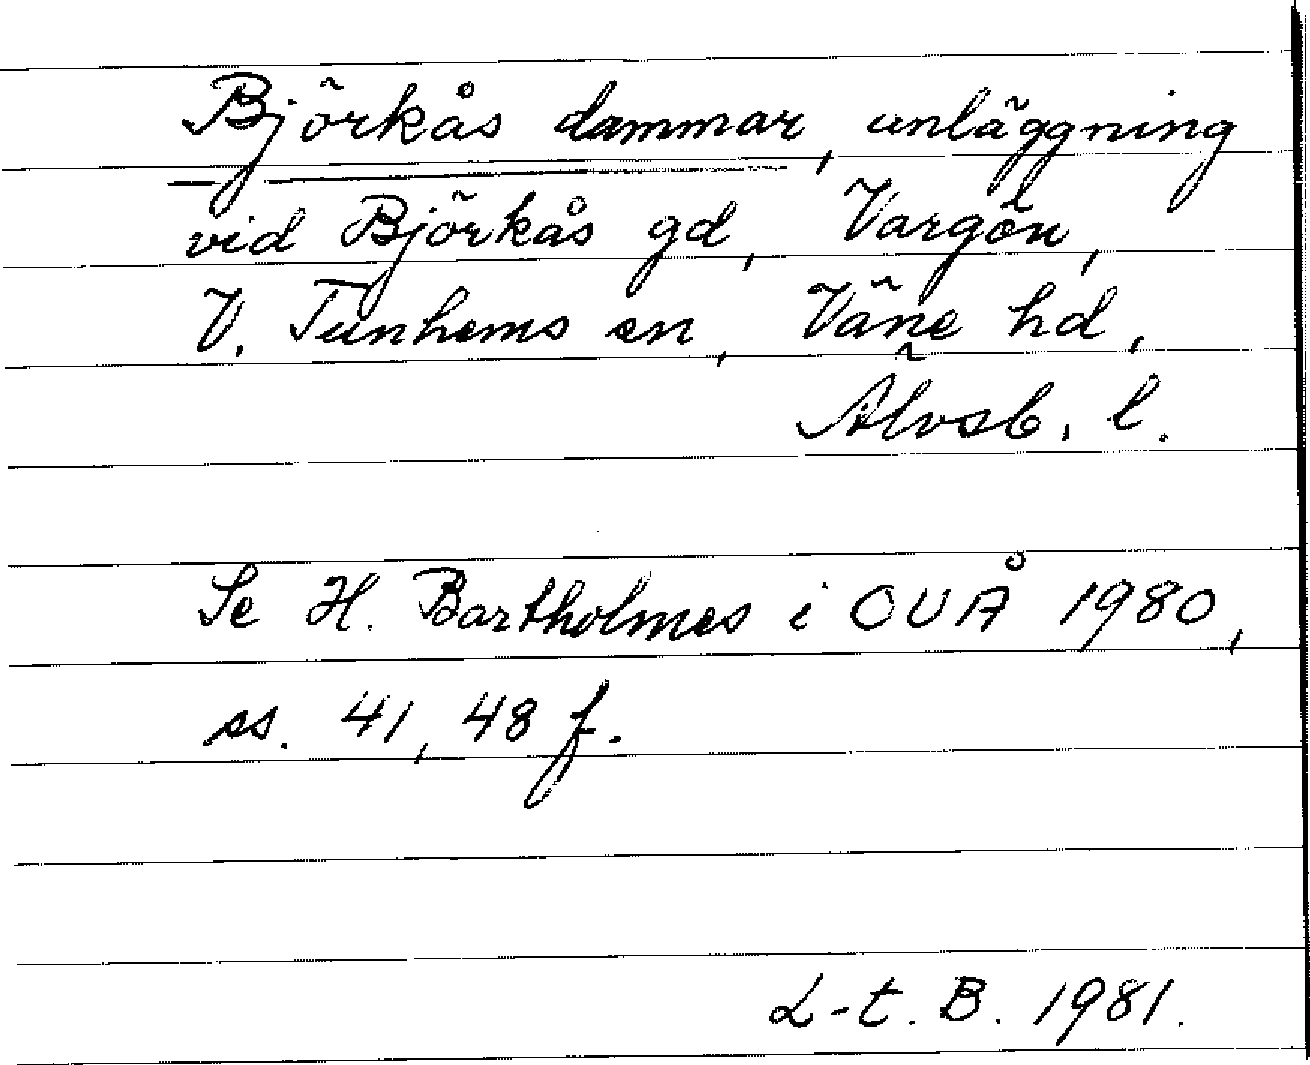 Björkås dammar, anläggning
vid Björkås gd, Vargön,
V. Tunhems sn, Väne hd,
Älvsb. l.
Se H. Bartholmes i OUÅ 1980,
ss. 41, 48 f.
L-t. B. 1981.